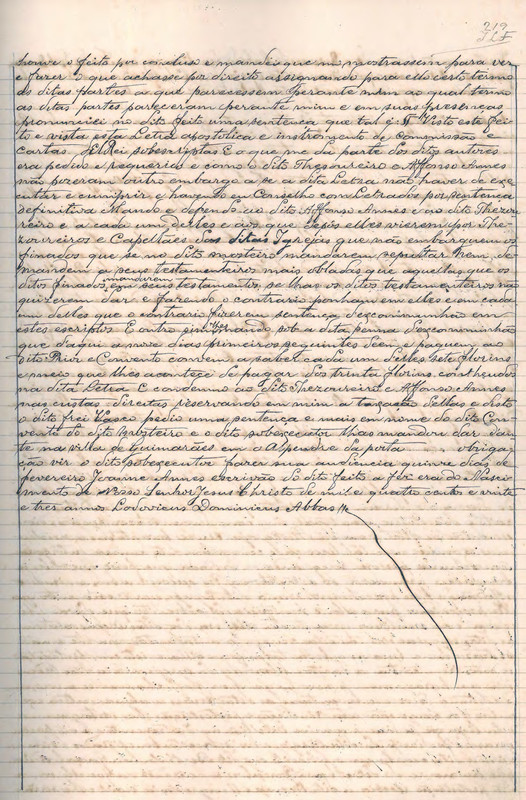 219
houve o feito por concluso e mandei que m'o mostrassem para ver
e fazer o que achasse por direito assignando para ello certo termo
ás ditas partes a que parecessem perante mim ao qual termo
as ditas partes pareceram perante mim e em suas presenças
pronunciei no dito feito uma sentença que tal é Visto este fei
to e vista esta Letra apostolica e instromento de commissão e
cartas d'El Rei sobescriptas E o que me da parte dos ditos autores
era pedido e requerido e como o dito Thezoureiro e Affonso Annes
não pozeram outro embargo a se a dita Letra não haver de exe
cutar e cumprir e havendo eu Conselho com Letrados por sentença
definitiva Mando e defendo ao dito Affonso Annes e ao dito Thezou
reiro e a cada um delles e aos que depós elles vierem por The
zoureiros e Capellães das ditas Igrejas que não embarguem os
finados que se no dito mosteiro mandarem sepultar Nem de
mandem a seus testamenteiros mais obladas que aquellas que os
ditos finados mandarem em seus testamentos se lhas os ditos testamenteiros não
quizerem dar e fazendo o contrario ponho em elles e em cada
um delles que o contrario fizerem sentença d'excomunhão em
estes escriptos E outro sim Mando sob a dita penna d'excomunhão
que d'aqui a nove dias primeiros seguintes dêem e paguem ao
dito Prior e Convento convem a saber cada um delles sete florins
e meio que lhes acontece de pagar dos trinta florins conthuedos
na dita Letra E condemno ao dito Thezoureiro e Affonso Annes
nas custas directas reservando em mim a taxação dellas e desto
o dito frei Vasco pedio uma sentença e mais em nome do dito Con
vento do dito Moisteiro e o dito sobexecutor lhas mandou dar dan
te na villa de Guimarães em o Alpendre da porta obriga
ção vir o dito sobexecutor fazer sua audiencia quinze dias de
fevereiro Joanne Annes escrivão do dito feito a fez era do Nasci
mento de Nosso Senhor Jesus Christo de mil e quatro centos e vinte
e tres annos Lodovicus Dominicus Abbas